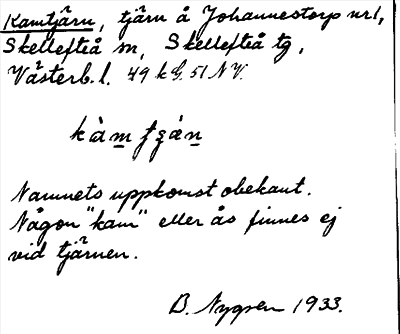 Kamtjärn, tjärn å Johannestorp nr 1,
Skellefteå sn, Skellefteå tg,
Västerb. l. 49 k G. 51 NV.
kàm
Namnets uppkomst obekant.
Någon "kam" eller ås finnes ej
vid tjärnen.
B. Nygren 1933.